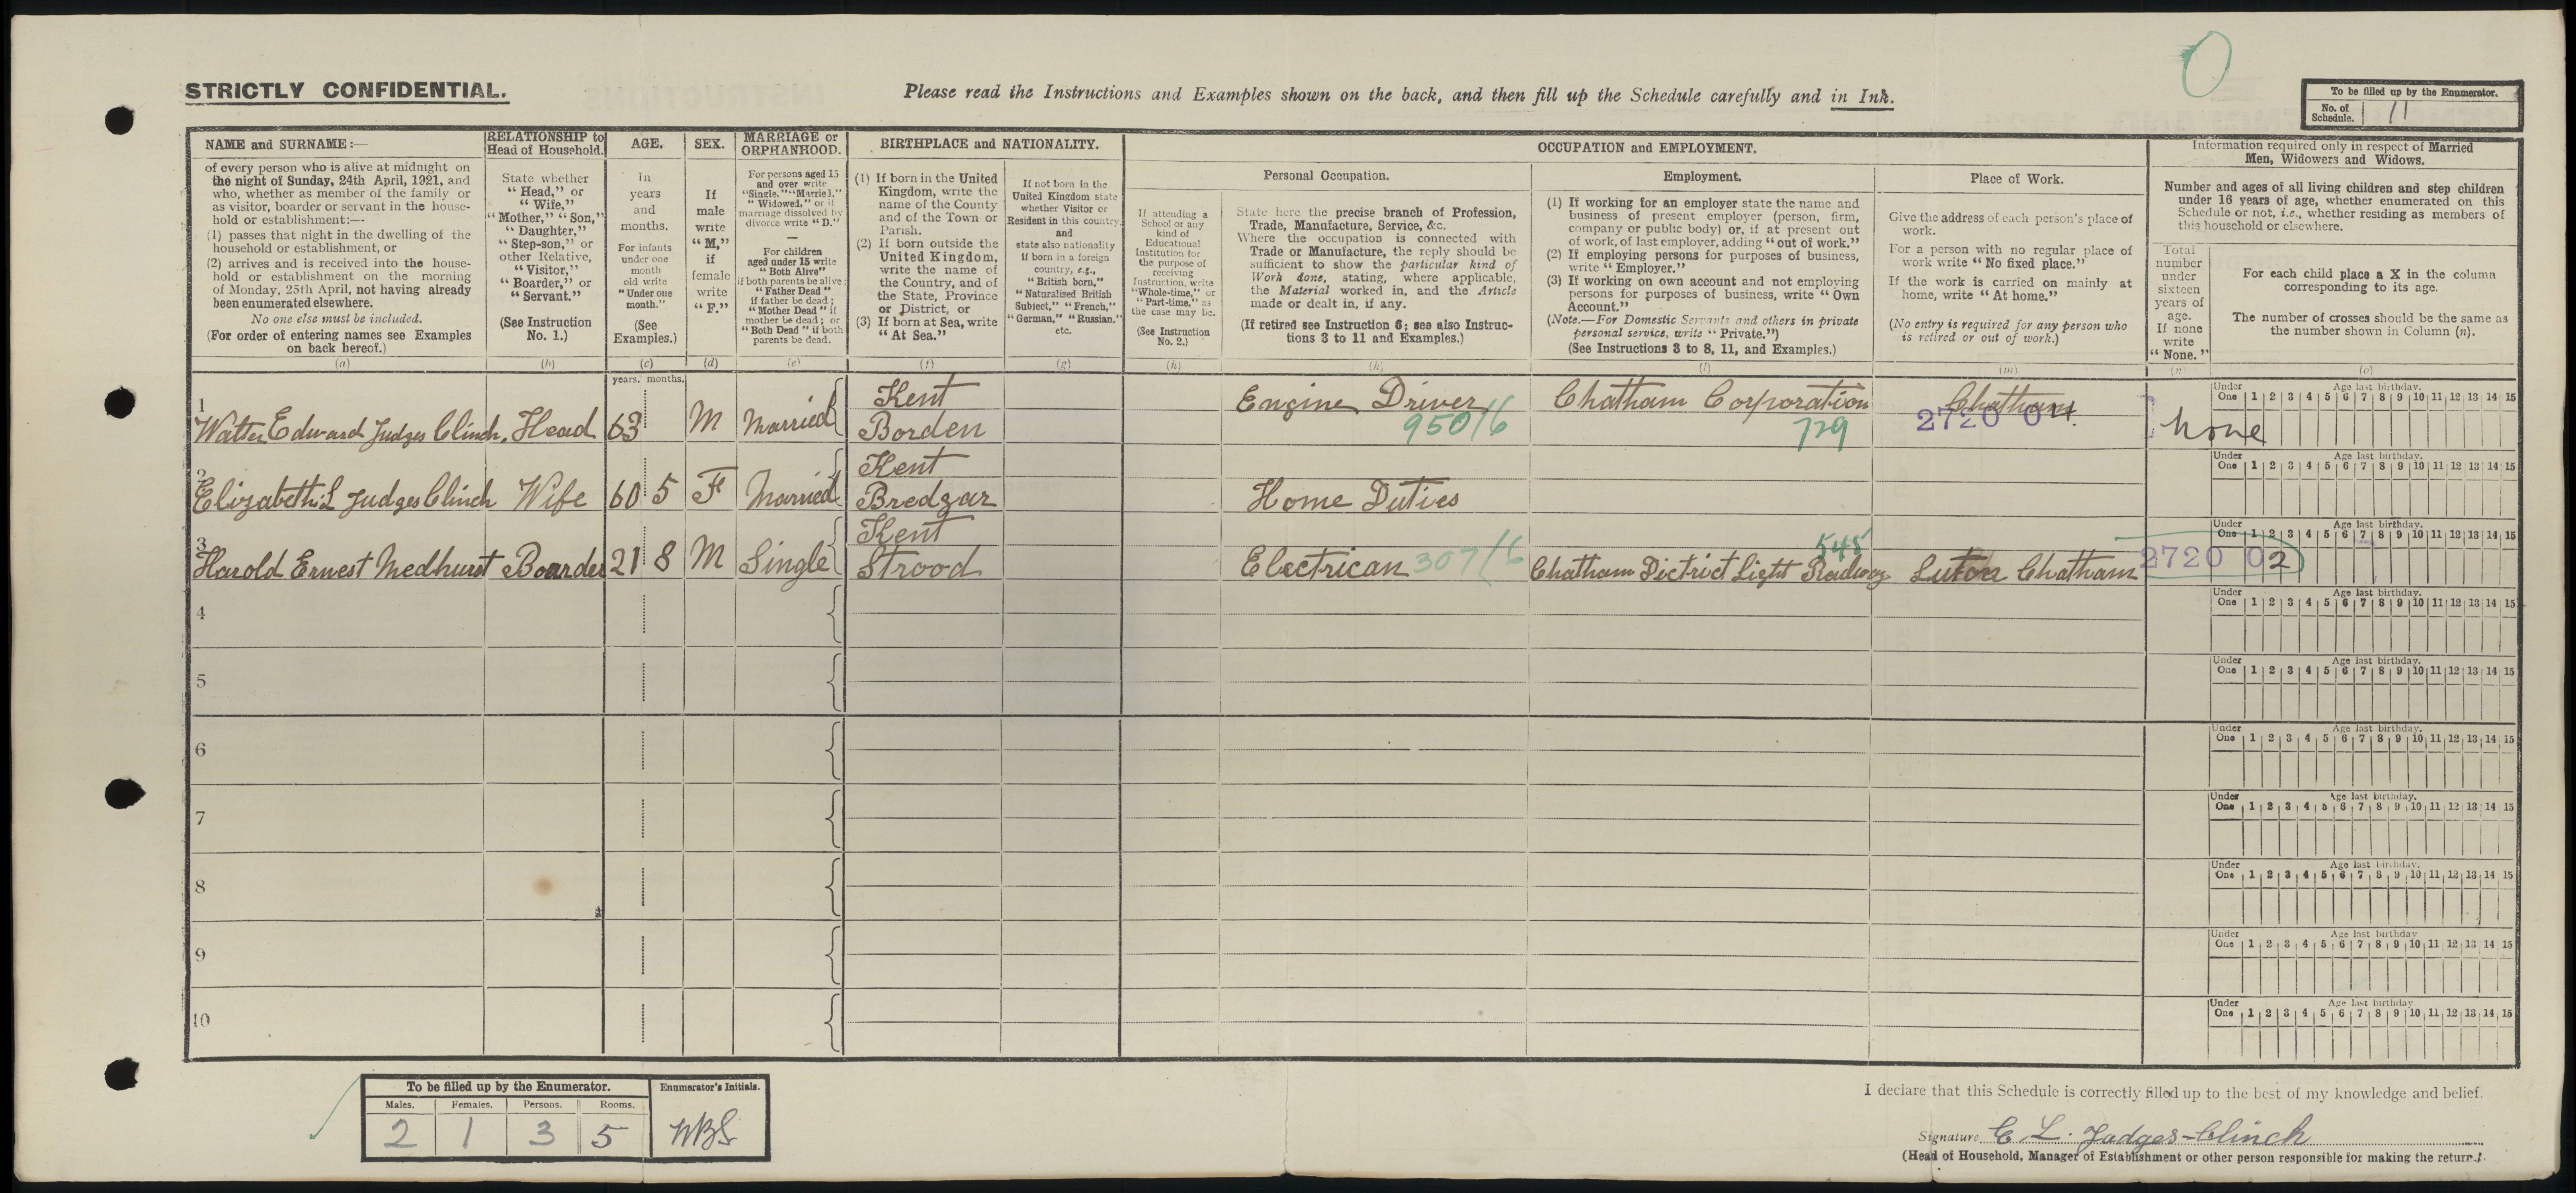 STRICTLY CONFIDENTIAL.
Please read the Instructions and Examples shown on the back, and then fill up the Schedule carefully and in Ink.
To be filled up by the Enumerator.
No. of Schedule. 11
NAME and SURNAME:—
of every person who is alive at midnight on
the night of Sunday, 24th April, 1921, and
who, whether as member of the family or
as visitor, boarder or servant in the house-
hold or establishment:—
(1) passes that night in the dwelling of the
household or establishment, or
(2) arrives and is received into the house-
hold or establishment on the morning
of Monday, 25th April, not having already
been enumerated elsewhere.
No one else must be included.
(For order of entering names see Examples
on back hereof.)
(a)
RELATIONSHIP to
Head of Household.
State whether
"Head," or
"Wife,"
"Mother," "Son,"
"Daughter,"
"Step-son," or
other Relative,
"Visitor,"
"Boarder," or
"Servant."
(See Instruction
No. 1.)
(b)
AGE.
In
years
and
months.
For infants
under one
month
old write
"Under one
month."
(See
Examples.)
(c)
SEX.
If
male
write
"M,"
if
female
write
"F."
(d)
MARRIAGE or
ORPHANHOOD.
For persons aged 15
and over write
"Single," "Married,"
"Widowed," or if
marriage dissolved by
divorce write "D."
For children
aged under 15 write
"Both Alive"
if both parents be alive;
"Father Dead"
if father be dead;
"Mother Dead" if
mother be dead; or
"Both Dead" if both
parents be dead.
(e)
BIRTHPLACE and NATIONALITY.
(1) If born in the United
Kingdom, write the
name of the County
and of the Town or
Parish.
(2) If born outside the
United Kingdom,
write the name of
the Country, and of
the State, Province
or District, or
(3) If born at Sea, write
"At Sea."
(f)
If not born in the
United Kingdom state
whether Visitor or
Resident in this country,
and
state also nationality
if born in a foreign
country, e.g.,
"British born,"
"Naturalised British
Subject," "French,"
"German," "Russian,"
etc.
(g)
OCCUPATION and EMPLOYMENT.
If attending a
School or any
kind of
Educational
Institution for
the purpose of
receiving
Instruction, write
"Whole-time," or
"Part-time," as
the case may be.
(See Instruction
No. 2.)
(h)
Personal Occupation.
State here the precise branch of Profession,
Trade, Manufacture, Service, &c.
Where the occupation is connected with
Trade or Manufacture, the reply should be
sufficient to show the particular kind of
Work done, stating, where applicable,
the Material worked in, and the Article
made or dealt in, if any.
(If retired see Instruction 6; see also Instruc-
tions 3 to 11 and Examples.)
(k)
Employment.
(1) If working for an employer state the name and
business of present employer (person, firm,
company or public body) or, if at present out
of work, of last employer, adding "out of work."
(2) If employing persons for purposes of business,
write "Employer."
(3) If working on own account and not employing
persons for purposes of business, write "Own
Account."
(Note.—For Domestic Servants and others in private
personal service, write "Private.")
(See Instructions 3 to 8, 11, and Examples.)
(l)
Place of Work.
Give the address of each person's place of
work.
For a person with no regular place of
work write "No fixed place."
If the work is carried on mainly at
home, write "At home."
(No entry is required for any person who
is retired or out of work.)
(m)
Information required only in respect of Married
Men, Widowers and Widows.
Number and ages of all living children and step children
under 16 years of age, whether enumerated on this
Schedule or not, i.e., whether residing as members of
this household or elsewhere.
Total
number
under
sixteen
years of
age.
If none
write
"None."
(n)
For each child place a X in the column
corresponding to its age.
The number of crosses should be the same as
the number shown in Column (n).
(o)
years. months.
1 Walter Edward Judges Clinch, Head 63 M Married Kent Borden Engine Driver 950/6 Chatham Corporation 729 Chatham 2720 04. None
Under One Age last birthday. 1 2 3 4 5 6 7 8 9 10 11 12 13 14 15
2 Elizabeth L Judges Clinch Wife 60 5 F Married Kent Bredgar Home Duties
Under One Age last birthday. 1 2 3 4 5 6 7 8 9 10 11 12 13 14 15
3 Harold Ernest Medhurst Boarder 21 8 M Single Kent Strood Electrican 307/6 Chatham District Light Railway 545 Luton Chatham 2720 02
Under One Age last birthday. 1 2 3 4 5 6 7 8 9 10 11 12 13 14 15
4 Under One Age last birthday. 1 2 3 4 5 6 7 8 9 10 11 12 13 14 15
5 Under One Age last birthday. 1 2 3 4 5 6 7 8 9 10 11 12 13 14 15
6 Under One Age last birthday. 1 2 3 4 5 6 7 8 9 10 11 12 13 14 15
7 Under One Age last birthday. 1 2 3 4 5 6 7 8 9 10 11 12 13 14 15
8 Under One Age last birthday. 1 2 3 4 5 6 7 8 9 10 11 12 13 14 15
9 Under One Age last birthday 1 2 3 4 5 6 7 8 9 10 11 12 13 14 15
10 Under One Age last birthday. 1 2 3 4 5 6 7 8 9 10 11 12 13 14 15
To be filled up by the Enumerator. Enumerator's Initials.
Males. Females. Persons. Rooms.
2 1 3 5
I declare that this Schedule is correctly filled up to the best of my knowledge and belief.
Signature E. L. Judges-Clinch
(Head of Household, Manager of Establishment or other person responsible for making the return.)